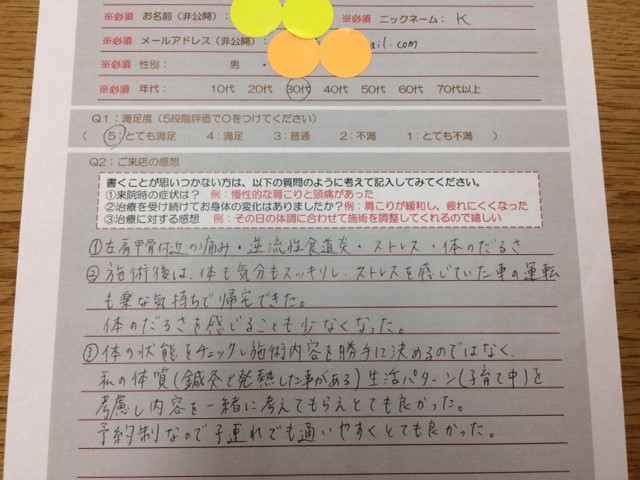 ※必須 お名前（非公開）： ※必須 ニックネーム： K
※必須 メールアドレス（非公開）： ail.com
※必須 性別： 男 ・
※必須 年代： 10代 20代 30代 40代 50代 60代 70代以上
Q1：満足度（5段階評価で○をつけてください）
（ 5：とても満足 4：満足 3：普通 2：不満 1：とても不満 ）
Q2：ご来店の感想
書くことが思いつかない方は、以下の質問のように考えて記入してみてください。
①来院時の症状は？ 例：慢性的な肩こりと頭痛があった
②治療を受け続けてお身体の変化はありましたか？例：肩こりが緩和し、疲れにくくなった
③治療に対する感想 例：その日の体調に合わせて施術を調整してくれるので嬉しい
①左肩甲骨付近の痛み・逆流性食道炎・ストレス・体のだるさ
②施術後は、体も気分もスッキリし、ストレスを感じていた車の運転
も楽な気持ちで帰宅できた。
体のだるさを感じることも少なくなった。
③体の状態をチェックし施術内容を勝手に決めるのではなく、
私の体質(鍼灸で発熱した事がある)生活パターン(子育て中)を
考慮し内容を一緒に考えてもらえとても良かった。
予約制なので子連れでも通いやすくとても良かった。